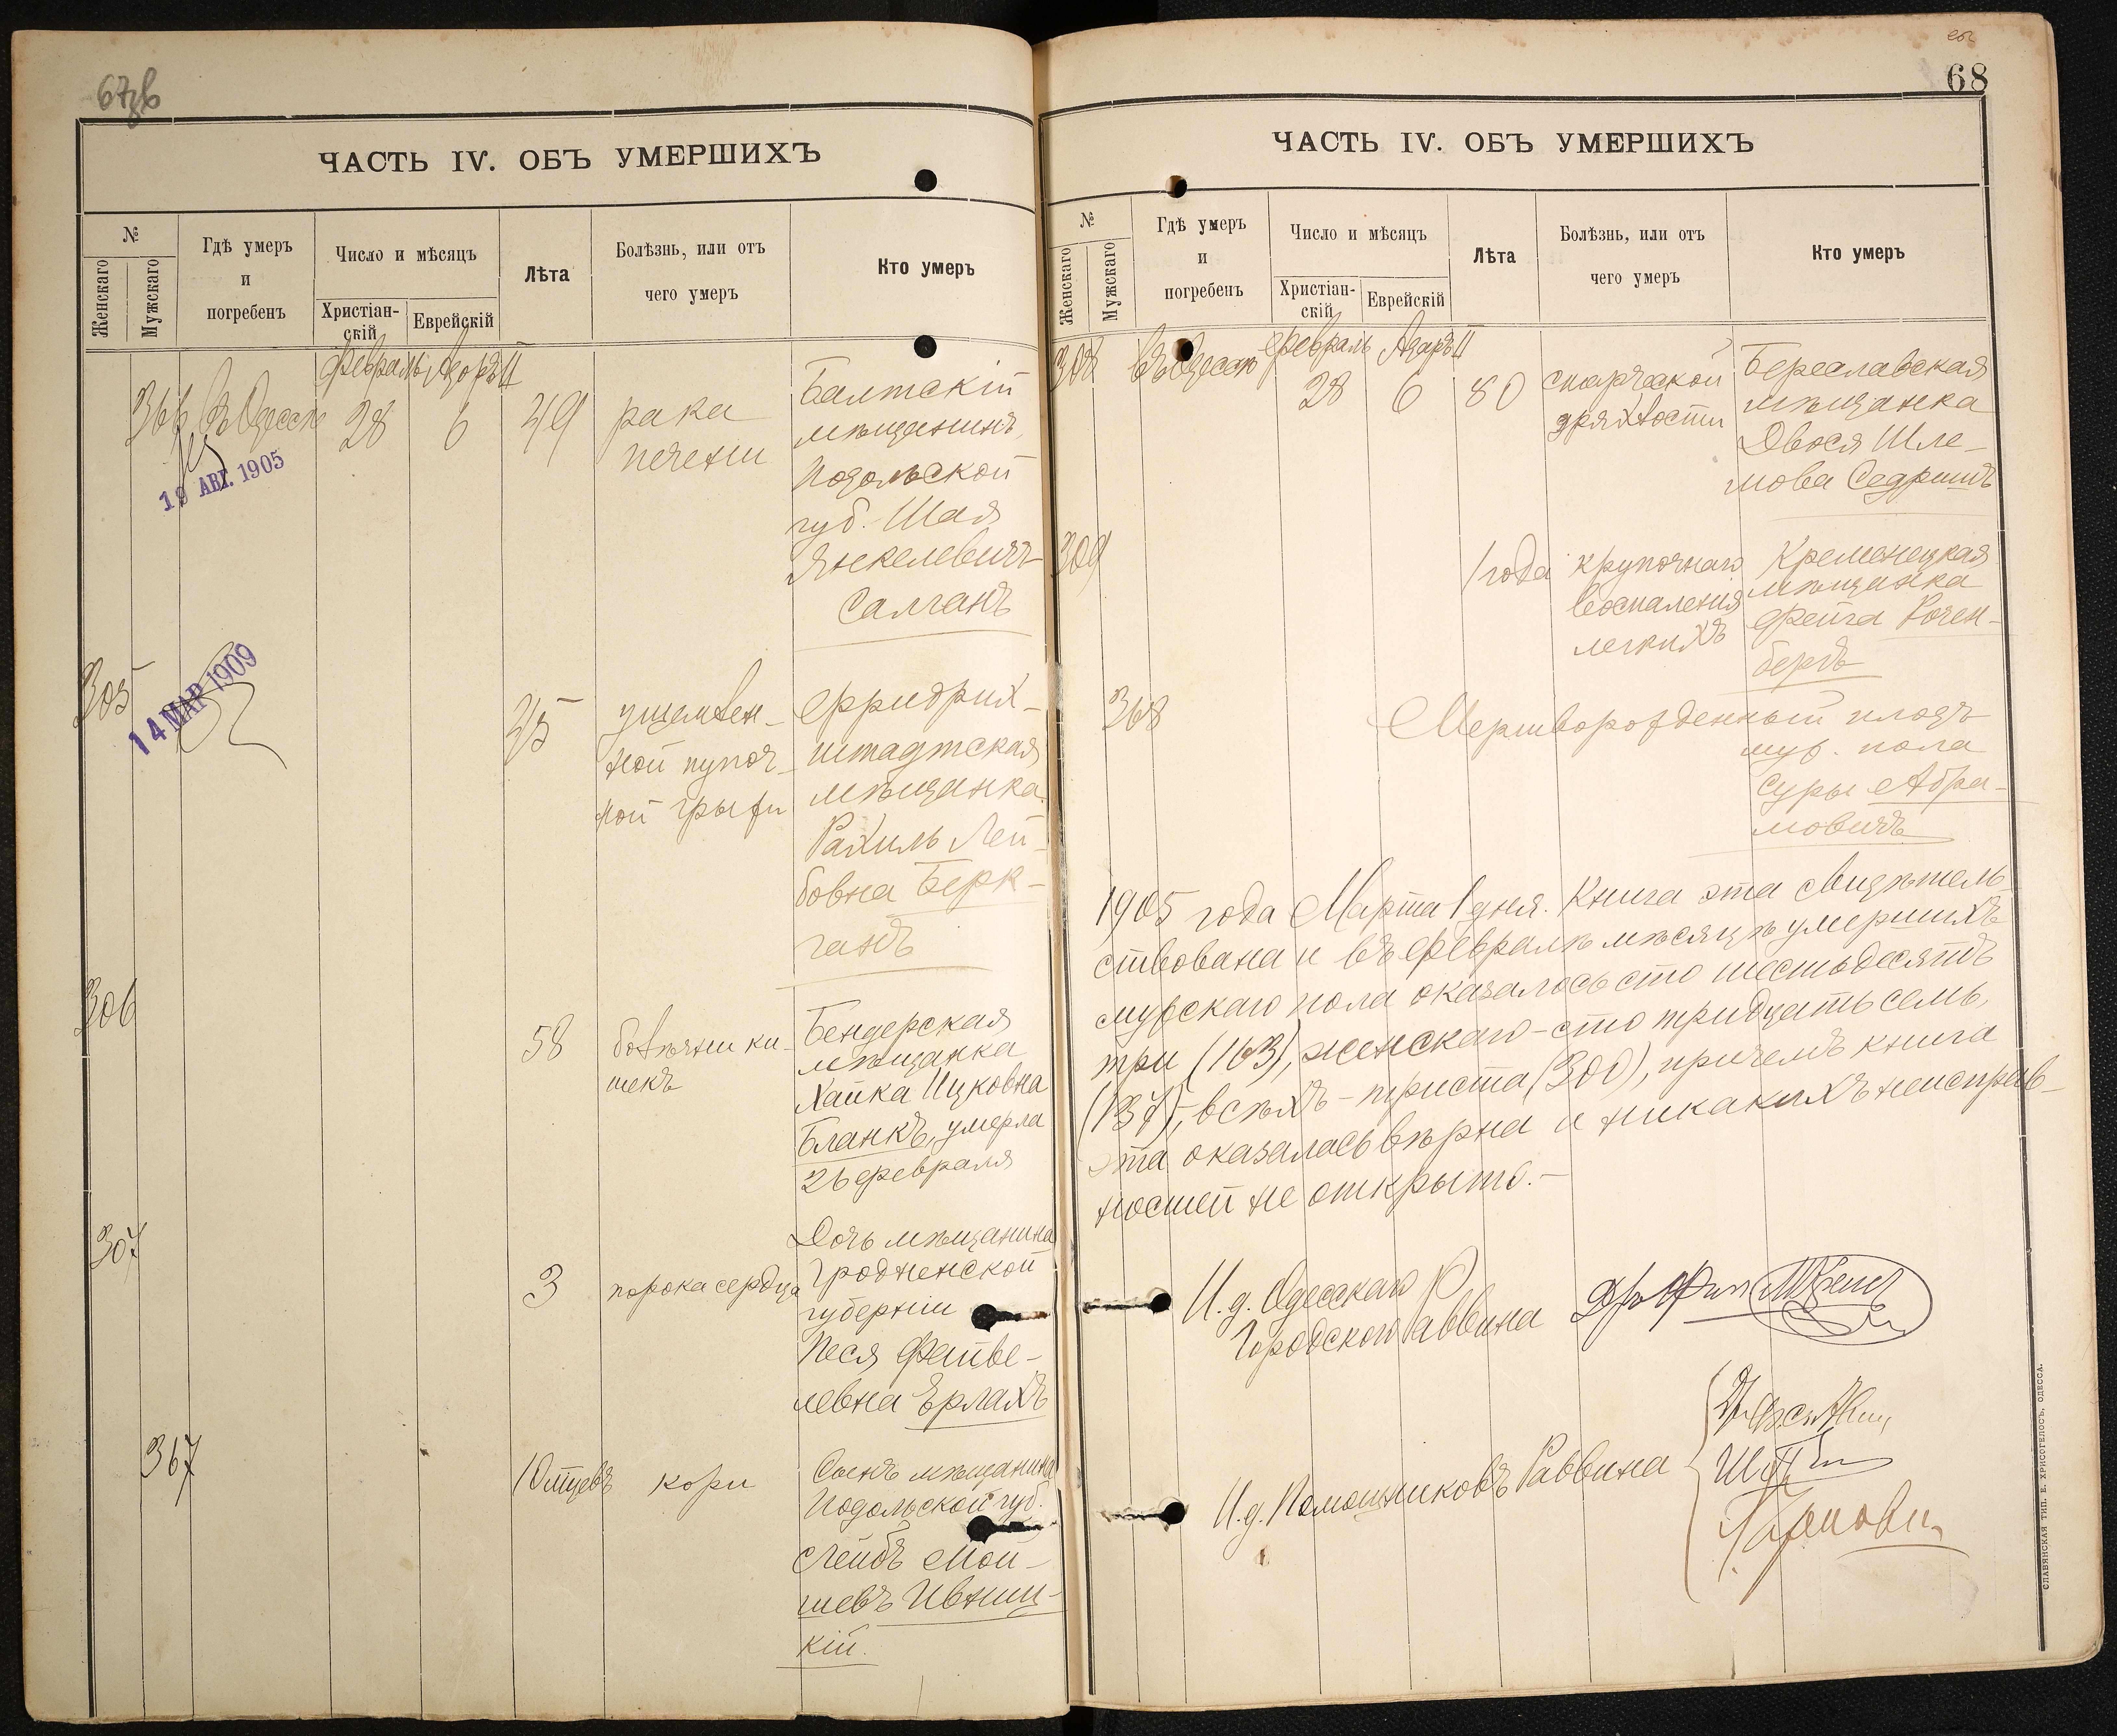 67об
ЧАСТЬ IV. ОБЪ УМЕРШИХЪ
№
Женскаго
Мужскаго
Гдѣ умеръ
и
погребенъ
Число и мѣсяцъ
Христіан-
скій
Еврейскій
Лѣта
Болѣзнь, или отъ
чего умеръ
Кто умеръ
февраль Адаръ II
366 въ Одессѣ 28 6 49
рака
печени
Балтскій
мѣщанинъ,
Подольской
губ. Шая
Янкелевичъ
Салганъ
19 АВГ. 1905
305
14 МАР 1909
35
ущемлен-
ной пупоч-
ной грыжи
Фридрих-
штадтская
мѣщанка
Рахиль Лей-
бовна Берк-
ганъ
306
58
болѣзни ки-
шекъ
Бендерская
мѣщанка
Хайка Ицковна
Бланкъ, умерла
26 февраля
307
3
порока сердца
Дочь мѣщанина
Гродненской
губерніи
Песя Файве-
левна Ерлахъ
367
10 мѣсяцевъ
кори
Сынъ мѣщанина
Подольской губ.
Лейбъ Мой-
шевъ Ивниц-
кій.
68
ЧАСТЬ IV. ОБЪ УМЕРШИХЪ
№
Женскаго
Мужскаго
Гдѣ умеръ
и
погребенъ
Число и мѣсяцъ
Христіан-
скій
Еврейскій
Лѣта
Болѣзнь, или отъ
чего умеръ
Кто умеръ
февраль Адаръ II
308 въ Одессѣ 28 6 80
старческой
дряхлости
Береславская
мѣщанка
Двося Шле-
мова Седришъ
309
1 года
крупознаго
воспаленія
легкихъ
Кременецкая
мѣщанка
Фейга Розен-
бергъ
368
Мертворожденный плодъ
муж. пола
Суры Абра-
мовичъ
1905 года Марта 1 дня. Книга эта свидѣтель-
ствована и въ февралѣ мѣсяцѣ умершихъ
мужскаго пола оказалось сто шестьдесятъ
три (163), женскаго-сто тридцать семь,
(137), всѣхъ-триста (300), причемъ книга
эта оказалась вѣрна и никакихъ неисправ-
ностей не открыто.-
И. д. Одесскаго
Городского Раввина
И. д. Помощниковъ Раввина
СЛАВЯНСКАЯ ТИП. Е. ХРИСОГЕЛОСЪ, ОДЕССА.